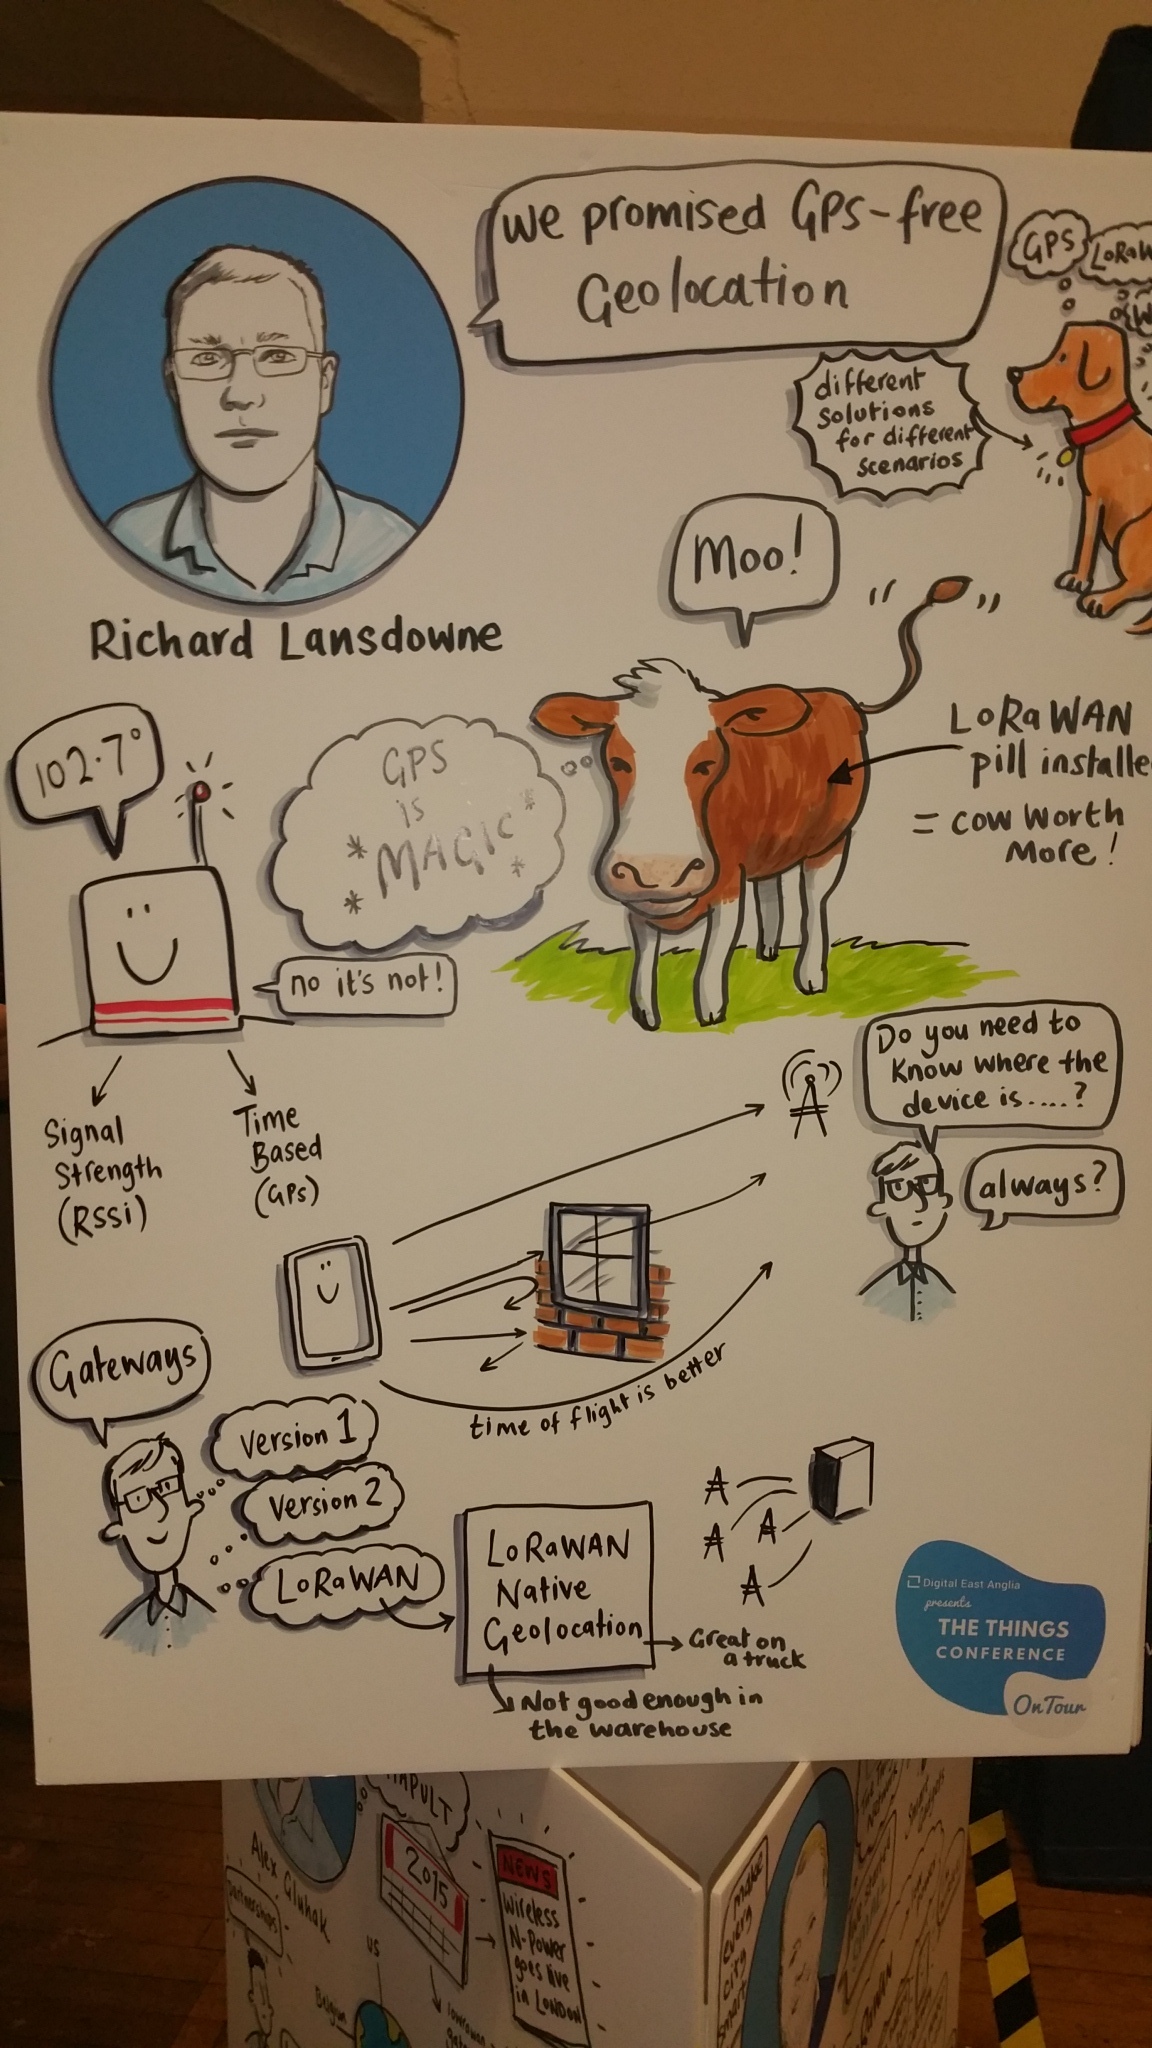 we promised GPS-free
Geolocation
GPS
LoRaW
different
solutions
for different
scenarios
Moo!
Richard Lansdowne
LoRaWAN
pill installe
= cow worth
more!
102.7°
GPS
is
* MAGIC *
* *
no it's not!
Signal
Strength
(RSSi)
Time
Based
(GPS)
Do you need to
know where the
device is.....?
always?
time of flight is better
Gateways
Version 1
Version 2
LoRaWAN
LoRaWAN
Native
Geolocation
Great on
a truck
Not good enough in
the warehouse
Digital East Anglia
presents
THE THINGS
CONFERENCE
On Tour
APULT
Alex Gluhak
Partnerships
2015
NEWS
Wireless
N-Power
goes live
in LONDON
US
Belgium
make
every
city
smart